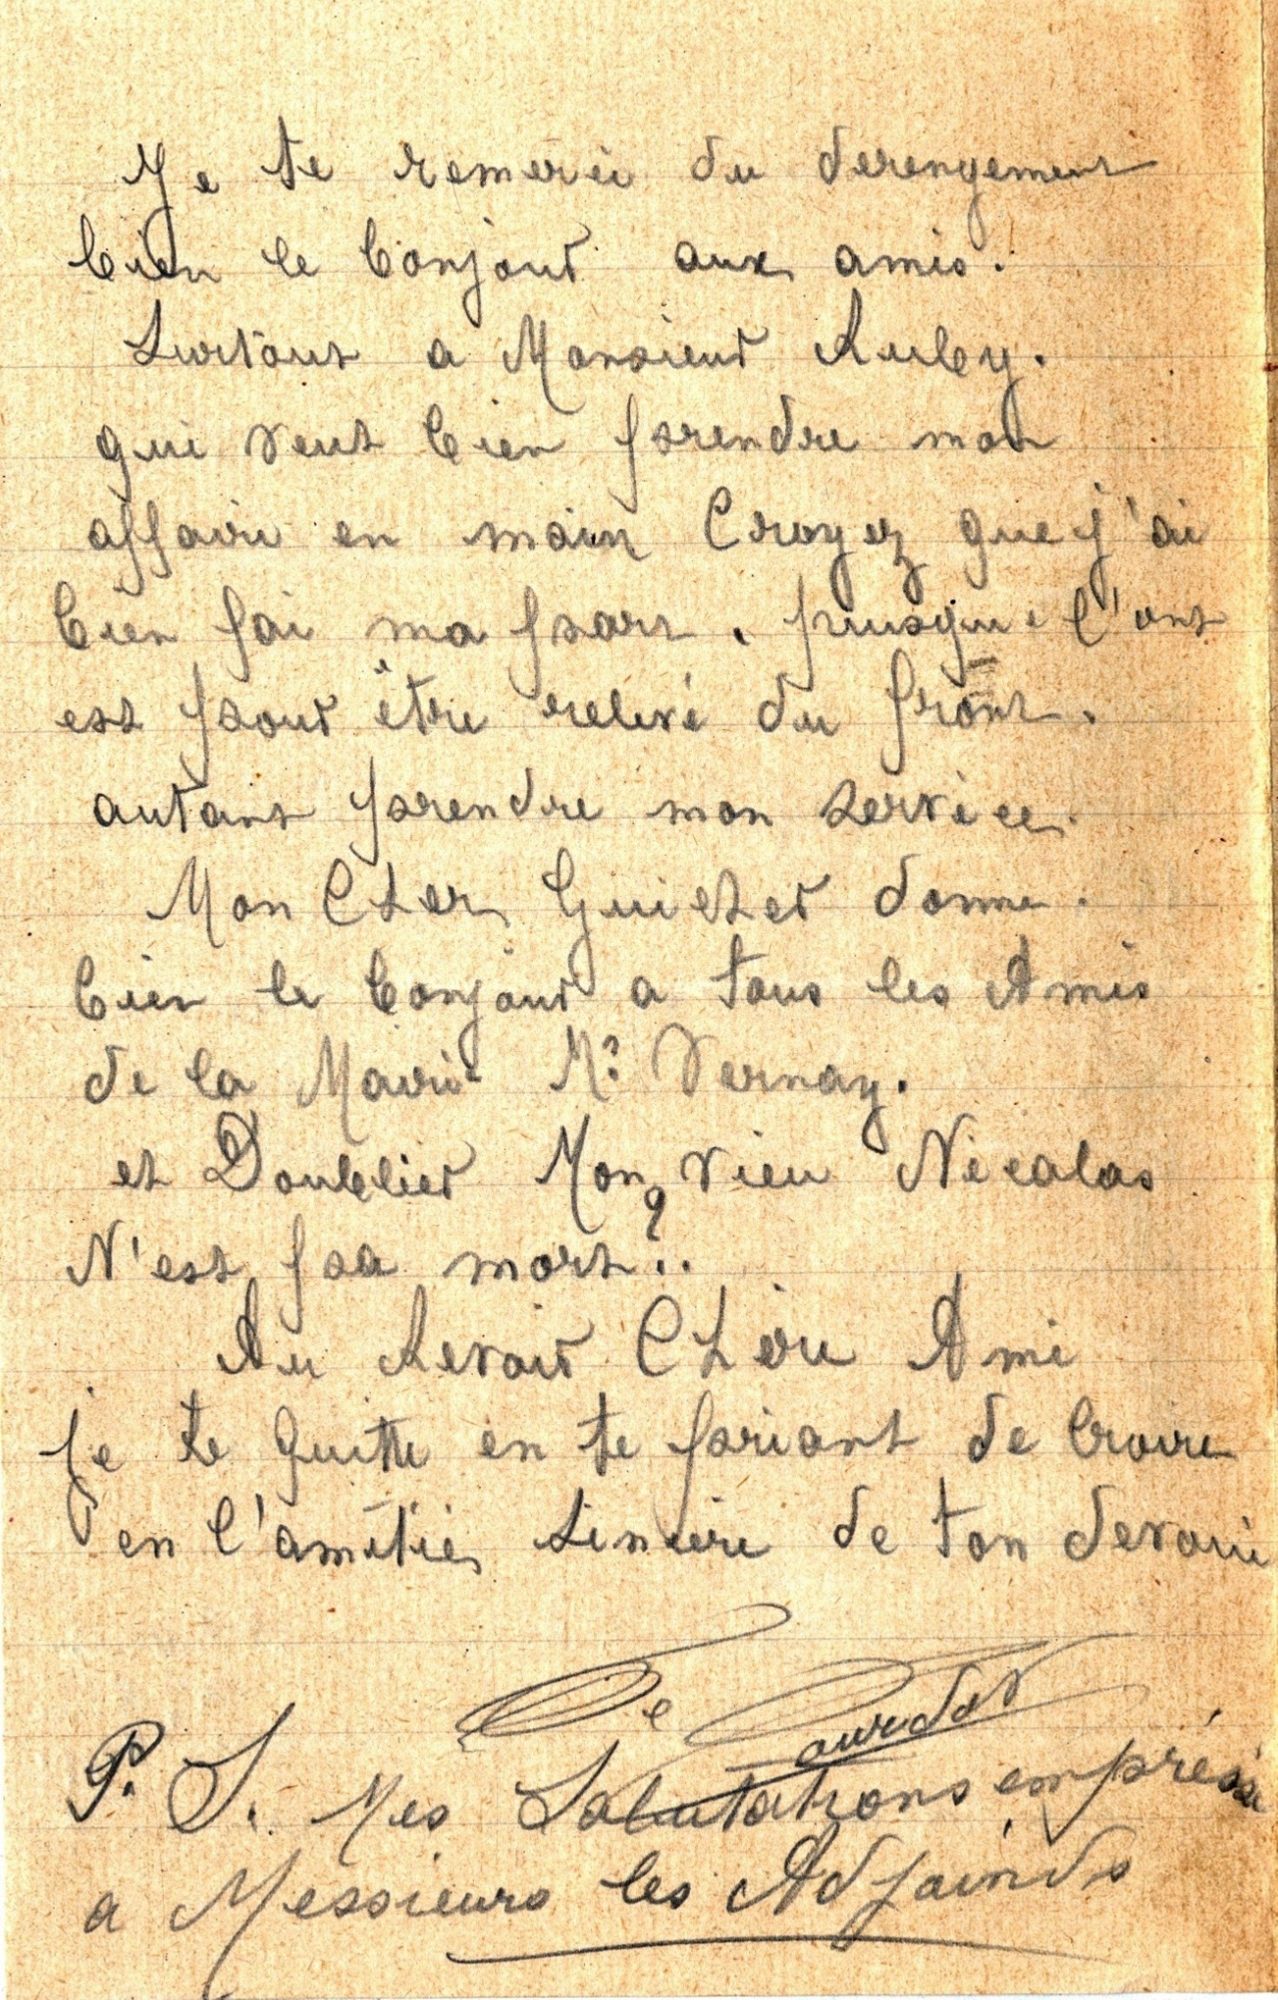 Je te remerci du derengement
bien le bonjour aux amis.
Surtout a Monsieur Auby.
qui veut bien prendre mon
affaire en main Croyez que j'ai
bien fai ma part. puisque l'ont
est pour être relevé du front.
autant prendre mon service.
Mon Cher Guicher donne.
bien le bonjour a tous les Amis
de la Mairi Mr Vernay.
et Doublier Mon vieu Nicolas
N'est pas mort?..
Au Revoir Chère Ami
je te quitte en te priant de croire
en l'amitié Sincère de ton devoué
P. S. Mes Salutations empréssé
a Messieurs les Adjoinds